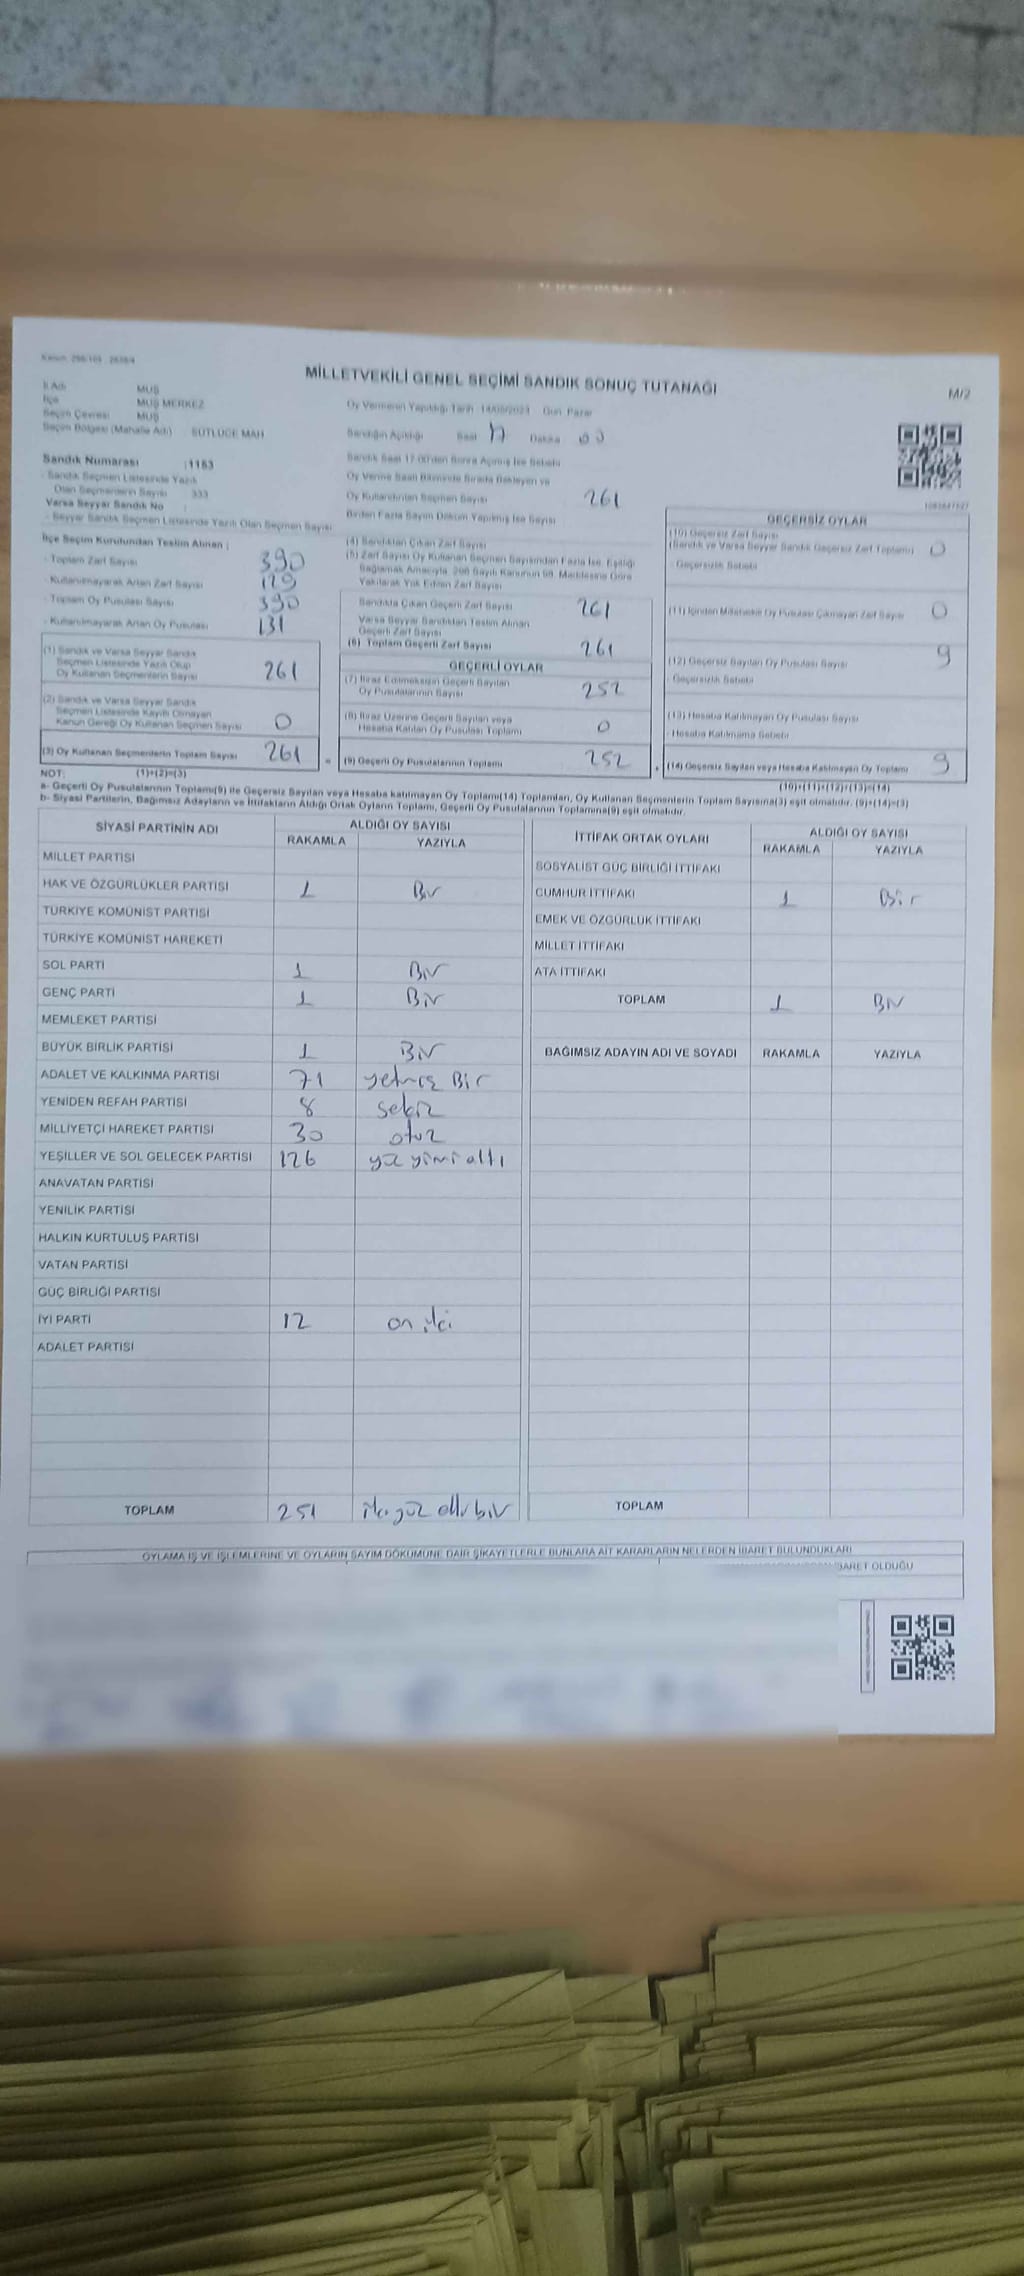 Kanun: 298/105 - 2839/4
MİLLETVEKİLİ GENEL SEÇİMİ SANDIK SONUÇ TUTANAĞI
M/2
İl Adı MUŞ
İlçe MUŞ MERKEZ
Seçim Çevresi MUŞ
Seçim Bölgesi (Mahalle Adı) SÜTLÜCE MAH
Sandık Numarası :1153
- Sandık Seçmen Listesinde Yazılı
Olan Seçmenlerin Sayısı 333
Varsa Seyyar Sandık No :
- Seyyar Sandık Seçmen Listesinde Yazılı Olan Seçmen Sayısı
Oy Vermenin Yapıldığı Tarih 14/05/2023 Gün Pazar
Sandığın Açıldığı Saat 17 Dakika 00
Sandık Saat 17:00'den Sonra Açılmış İse Sebebi
Oy Verme Saati Bitiminde Sırada Bekleyen ve
Oy Kullandırılan Seçmen Sayısı 261
Birden Fazla Sayım Döküm Yapılmış İse Sayısı
İlçe Seçim Kurulundan Teslim Alınan ;
- Toplam Zarf Sayısı 390
- Kullanılmayarak Artan Zarf Sayısı 129
- Toplam Oy Pusulası Sayısı 390
- Kullanılmayarak Artan Oy Pusulası 131
(1) Sandık ve Varsa Seyyar Sandık
Seçmen Listesinde Yazılı Olup
Oy Kullanan Seçmenlerin Sayısı 261
(2) Sandık ve Varsa Seyyar Sandık
Seçmen Listesinde Kayıtlı Olmayan
Kanun Gereği Oy Kullanan Seçmen Sayısı 0
(3) Oy Kullanan Seçmenlerin Toplam Sayısı 261 =
(4) Sandıktan Çıkan Zarf Sayısı
(5) Zarf Sayısı Oy Kullanan Seçmen Sayısından Fazla İse, Eşitliği
Sağlamak Amacıyla, 298 Sayılı Kanunun 98. Maddesine Göre
Yakılarak Yok Edilen Zarf Sayısı
Sandıkta Çıkan Geçerli Zarf Sayısı 261
Varsa Seyyar Sandıktan Teslim Alınan
Geçerli Zarf Sayısı
(6) Toplam Geçerli Zarf Sayısı 261
GEÇERLİ OYLAR
(7) İtiraz Edilmeksizin Geçerli Sayılan
Oy Pusulalarının Sayısı 252
(8) İtiraz Üzerine Geçerli Sayılan veya
Hesaba Katılan Oy Pusulası Toplamı 0
(9) Geçerli Oy Pusulalarının Toplamı 252 +
GEÇERSİZ OYLAR
(10) Geçersiz Zarf Sayısı
(Sandık ve Varsa Seyyar Sandık Geçersiz Zarf Toplamı) 0
- Geçersizlik Sebebi
(11) İçinden Milletvekili Oy Pusulası Çıkmayan Zarf Sayısı 0
(12) Geçersiz Sayılan Oy Pusulası Sayısı 9
- Geçersizlik Sebebi
(13) Hesaba Katılmayan Oy Pusulası Sayısı
- Hesaba Katılmama Sebebi
(14) Geçersiz Sayılan veya Hesaba Katılmayan Oy Toplamı 9
NOT: (1)+(2)=(3) (10)+(11)+(12)+(13)=(14)
a- Geçerli Oy Pusulalarının Toplamı(9) ile Geçersiz Sayılan veya Hesaba katılmayan Oy Toplamı(14) Toplamları, Oy Kullanan Seçmenlerin Toplam Sayısına(3) eşit olmalıdır. (9)+(14)=(3)
b- Siyasi Partilerin, Bağımsız Adayların ve İttifakların Aldığı Ortak Oyların Toplamı, Geçerli Oy Pusulalarının Toplamına(9) eşit olmalıdır.
SİYASİ PARTİNİN ADI ALDIĞI OY SAYISI
RAKAMLA YAZIYLA
MİLLET PARTİSİ
HAK VE ÖZGÜRLÜKLER PARTİSİ 1 Bir
TÜRKİYE KOMÜNİST PARTİSİ
TÜRKİYE KOMÜNİST HAREKETİ
SOL PARTİ 1 Bir
GENÇ PARTİ 1 Bir
MEMLEKET PARTİSİ
BÜYÜK BİRLİK PARTİSİ 1 Bir
ADALET VE KALKINMA PARTİSİ 71 yetmiş Bir
YENİDEN REFAH PARTİSİ 8 sekiz
MİLLİYETÇİ HAREKET PARTİSİ 30 otuz
YEŞİLLER VE SOL GELECEK PARTİSİ 126 yüz yirmi altı
ANAVATAN PARTİSİ
YENİLİK PARTİSİ
HALKIN KURTULUŞ PARTİSİ
VATAN PARTİSİ
GÜÇ BİRLİĞİ PARTİSİ
İYİ PARTİ 12 on iki
ADALET PARTİSİ
TOPLAM 251 iki yüz elli bir
İTTİFAK ORTAK OYLARI ALDIĞI OY SAYISI
RAKAMLA YAZIYLA
SOSYALİST GÜÇ BİRLİĞİ İTTİFAKI
CUMHUR İTTİFAKI 1 Bir
EMEK VE ÖZGÜRLÜK İTTİFAKI
MİLLET İTTİFAKI
ATA İTTİFAKI
TOPLAM 1 Bir
BAĞIMSIZ ADAYIN ADI VE SOYADI RAKAMLA YAZIYLA
TOPLAM
OYLAMA İŞ VE İŞLEMLERİNE VE OYLARIN SAYIM DÖKÜMÜNE DAİR ŞİKAYETLERLE BUNLARA AİT KARARLARIN NELERDEN İBARET BULUNDUKLARI
İBARET OLDUĞU